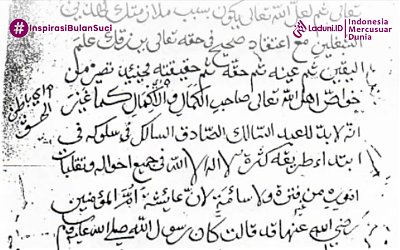 #InspirasiBulanSuci
Laduni.ID
Indonesia
Mercusuar
Dunia
تعالى ثم لعل الله تعالى ان يكون سبب ملازمتك
المتقين مع اعتقاد صحيح في حقه تعالى يرزقك علم
اليقين ثم عينه ثم حقه ثم حقيقته فحينئذ تصير من
خواص اهل الله تعالى صاحب الكمال والاكمال كما غير
انه لا بد للعبد السالك الصادق السالك في سلوكه في
ابتداء طريقه كثرة لا اله الا الله في جميع احواله وتقلبات
اموره من فترة ولا سامة لان عائشة ام المؤمنين
رضي الله عنها قد قالت كان رسول الله صلى الله عليه